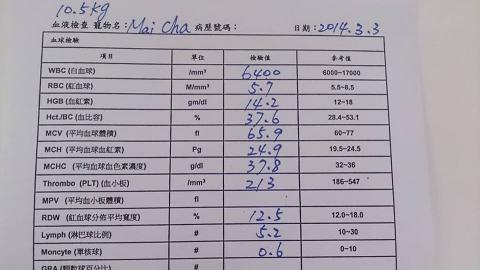 10.5kg
血液檢查 寵物名:Mai Cha 病歷號碼: 日期:2014.3.3
血球檢驗
項目 單位 檢驗值 參考值
WBC (白血球) /mm³ 6400 6000~17000
RBC (紅血球) M/mm³ 5.7 5.5~8.5
HGB (血紅素) gm/dl 14.2 12~18
Hct./BC (血比容) % 37.6 28.4~53.1
MCV (平均血球體積) fl 65.9 60~77
MCH (平均血球血紅素) Pg 24.9 19.5~24.5
MCHC (平均血球血色素濃度) g/dl 37.8 32~36
Thrombo (PLT) (血小板) /mm³ 213 186~547
MPV (平均血小板體積) fl
RDW (紅血球分佈平均寬度) % 12.5 12.0~18.0
Lymph (淋巴球比例) # 5.2 10~30
Moncyte (單核球) # 0.6 0~10
GRA (顆粒球百分比)